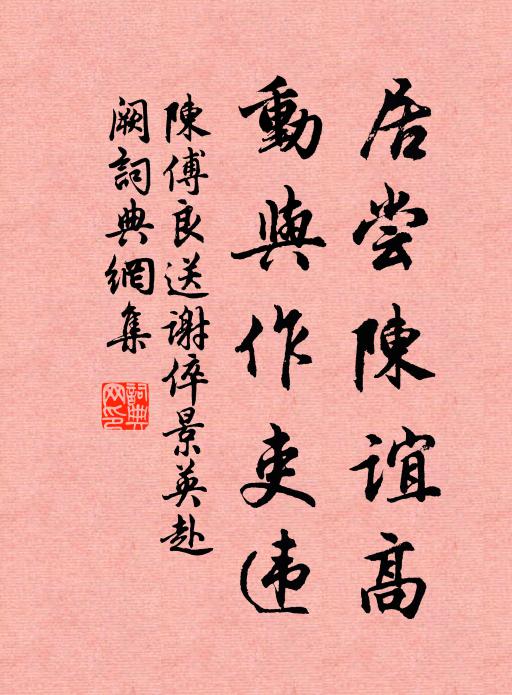 居尝陳誼高
動與作吏违
陳傅良送謝倅景英赴
阙詞典網集
詞典网印